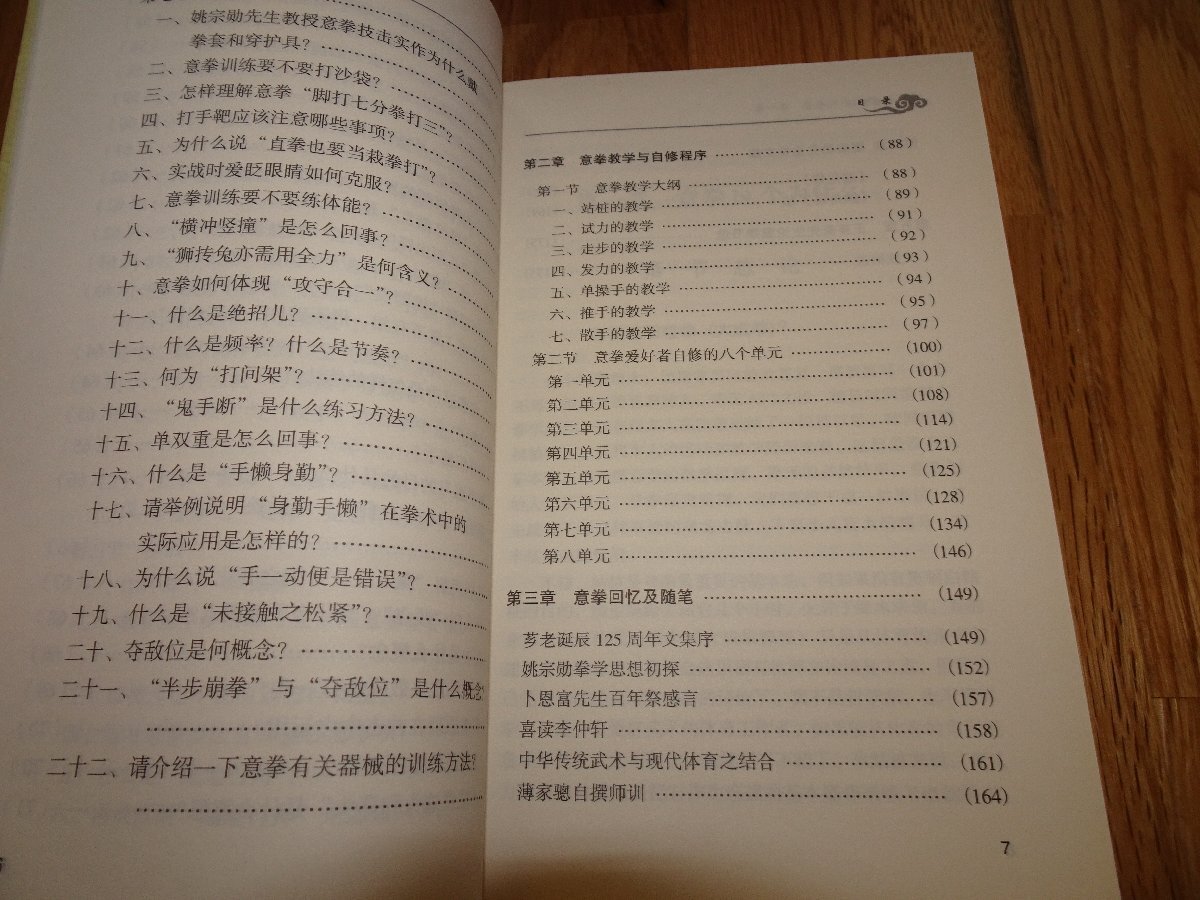 一、姚宗勋先生教授意拳技击实作为什么戴
拳套和穿护具？
二、意拳训练要不要打沙袋？
三、怎样理解意拳“脚打七分拳打三”？
四、打手靶应该注意哪些事项？
五、为什么说“直拳也要当栽拳打”？
六、实战时爱眨眼睛如何克服？
七、意拳训练要不要练体能？
八、“横冲竖撞”是怎么回事？
九、“狮抟兔亦需用全力”是何含义？
十、意拳如何体现“攻守合一”？
十一、什么是绝招儿？
十二、什么是频率？什么是节奏？
十三、何为“打间架”？
十四、“鬼手断”是什么练习方法？
十五、单双重是怎么回事？
十六、什么是“手懒身勤”？
十七、请举例说明“身勤手懒”在拳术中的
实际应用是怎样的？
十八、为什么说“手一动便是错误”？
十九、什么是“未接触之松紧”？
二十、夺敌位是何概念？
二十一、“半步崩拳”与“夺敌位”是什么概念？
二十二、请介绍一下意拳有关器械的训练方法？
目录
第二章 意拳教学与自修程序 (88)
第一节 意拳教学大纲 (88)
一、站桩的教学 (89)
二、试力的教学 (91)
三、走步的教学 (92)
四、发力的教学 (93)
五、单操手的教学 (94)
六、推手的教学 (95)
七、散手的教学 (97)
第二节 意拳爱好者自修的八个单元 (100)
第一单元 (101)
第二单元 (108)
第三单元 (114)
第四单元 (121)
第五单元 (125)
第六单元 (128)
第七单元 (134)
第八单元 (146)
第三章 意拳回忆及随笔 (149)
芗老诞辰125周年文集序 (149)
姚宗勋拳学思想初探 (152)
卜恩富先生百年祭感言 (157)
喜读李仲轩 (158)
中华传统武术与现代体育之结合 (161)
薄家骢自撰师训 (164)
7